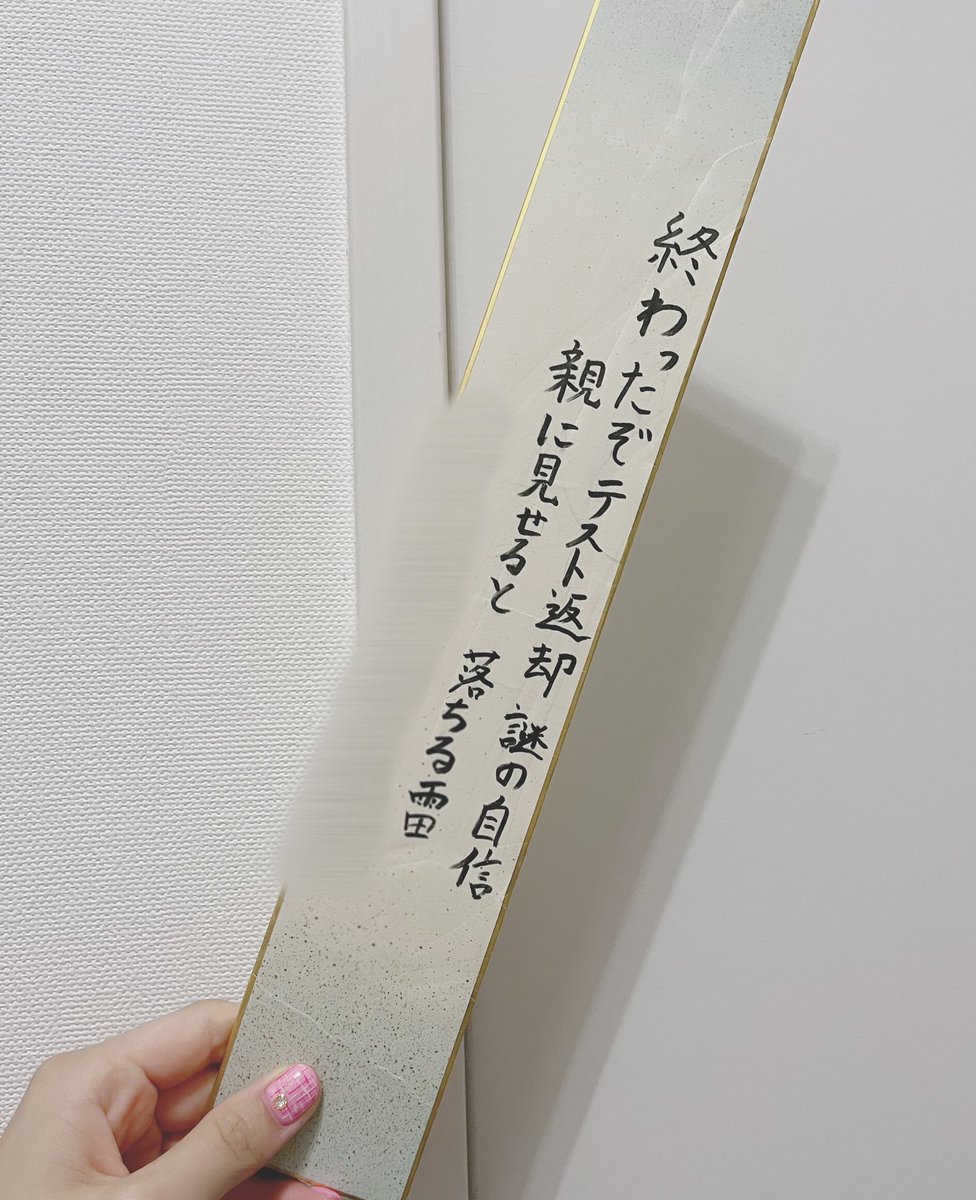 終わったぞテスト返却 謎の自信
親に見せると 落ちる雷